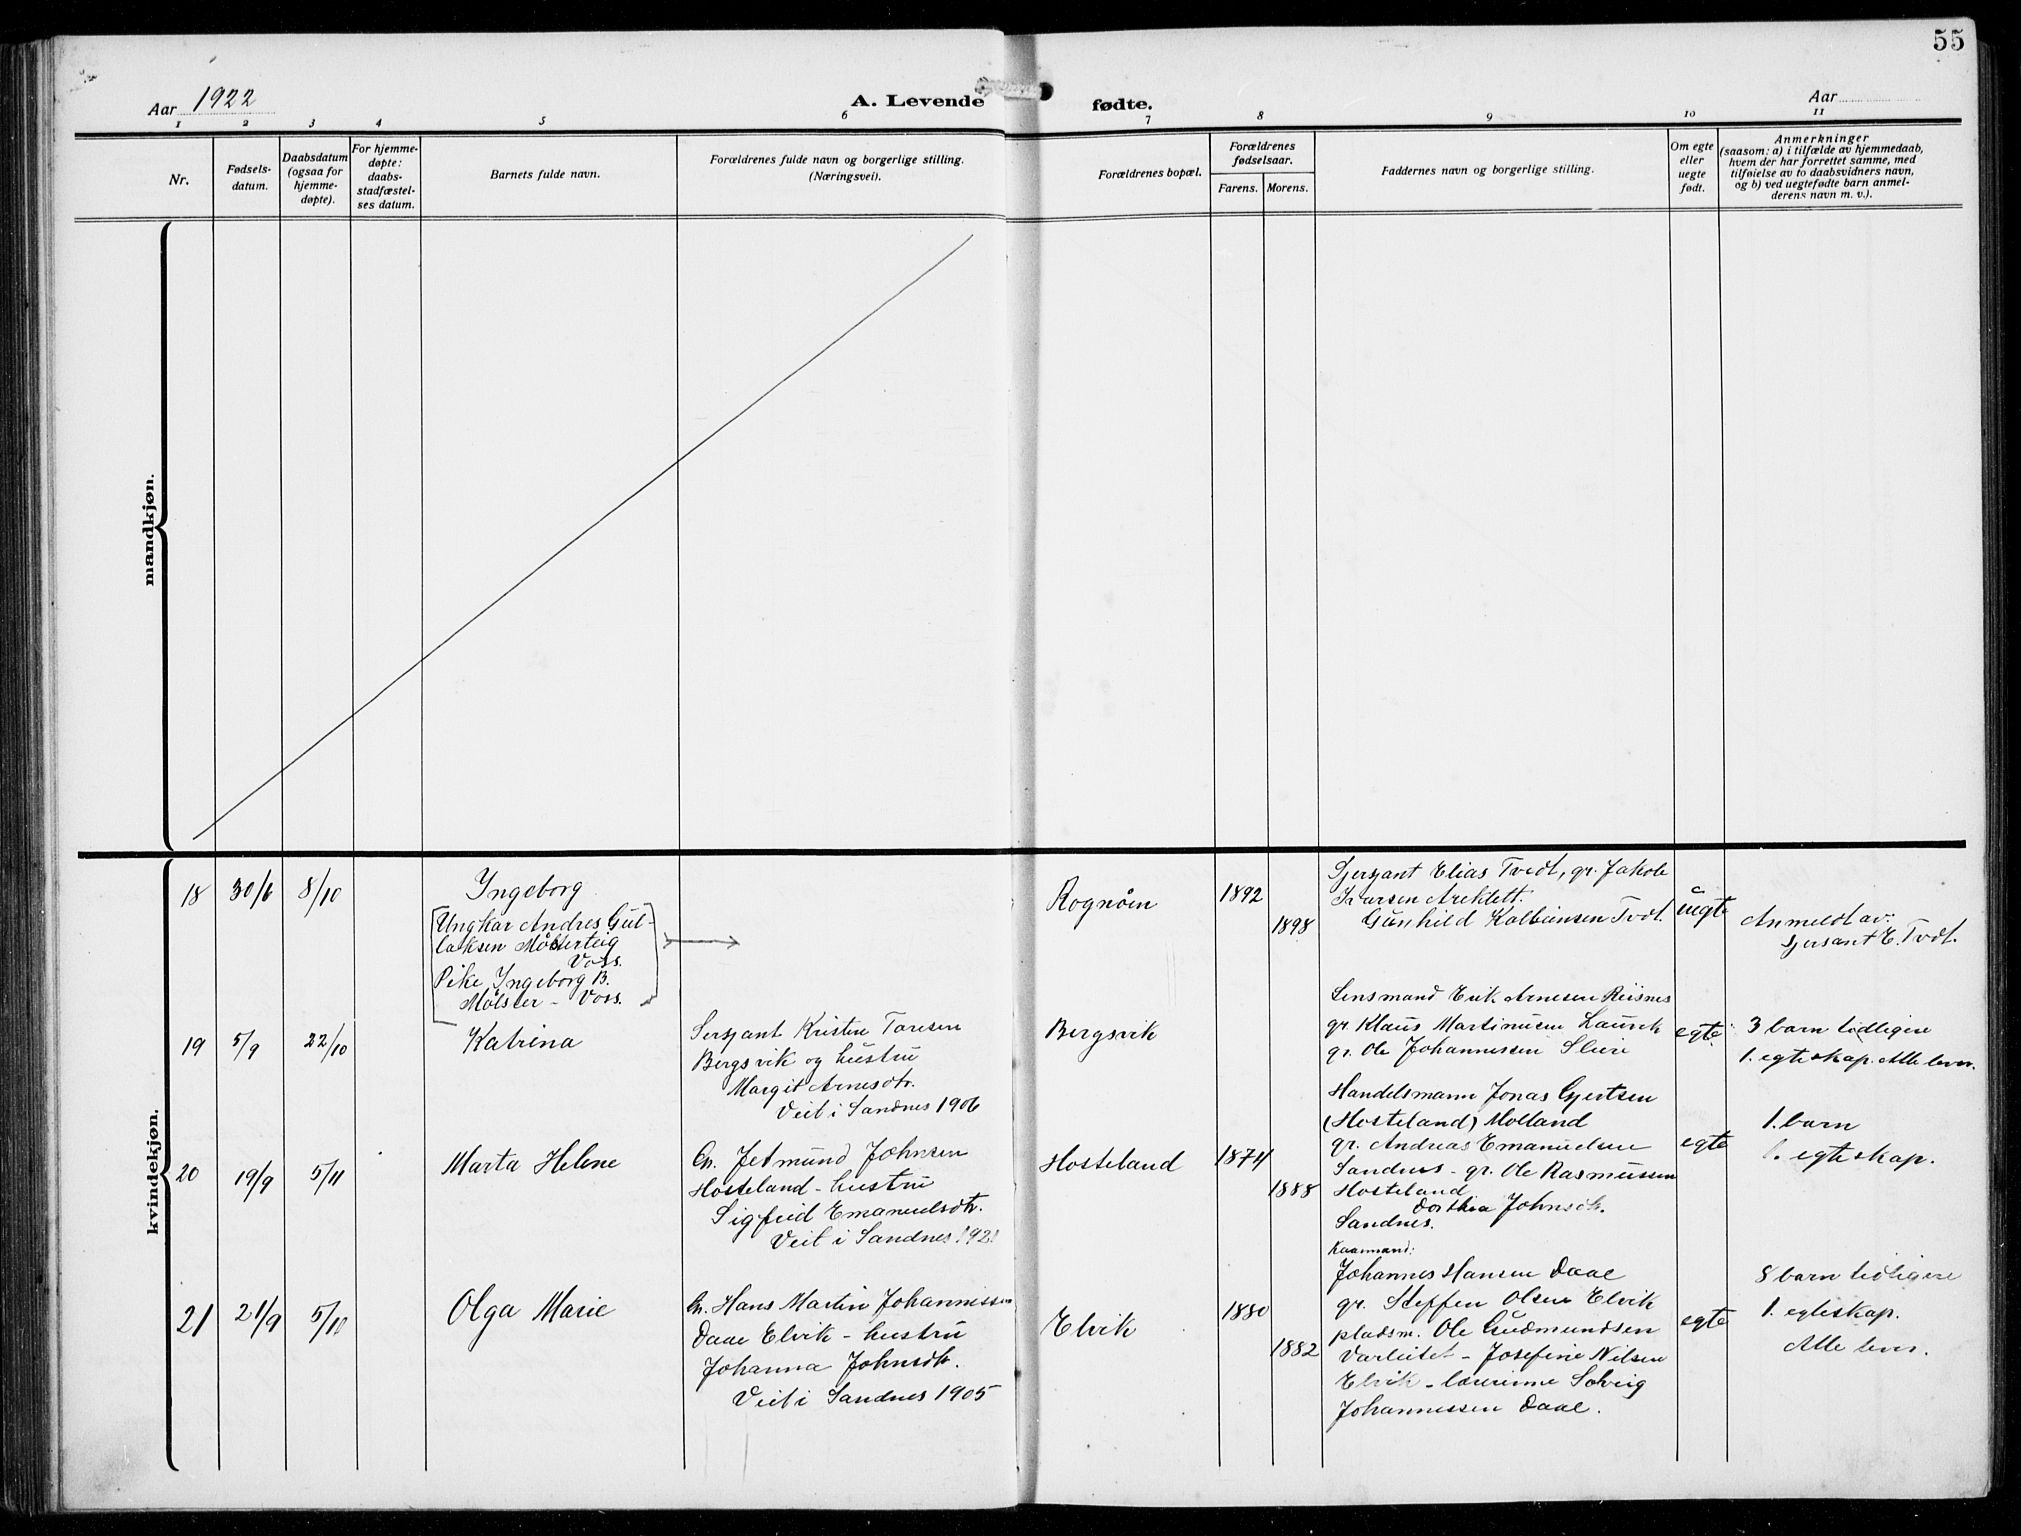 55
Aar 1922
A. Levende fødte.
Aar
1 2 3 4 5 6 7 8 9 10 11
Nr.
Fødsels-
datum.
Daabsdatum
(ogsaa for
hjemme-
døpte).
For hjemme-
døpte:
daabs-
stadfæstel-
ses datum.
Barnets fulde navn.
Forældrenes fulde navn og borgerlige stilling.
(Næringsvei).
Forældrenes bopæl.
Forældrenes
fødselsaar.
Farens. Morens.
Faddernes navn og borgerlige stilling.
Om egte
eller
uegte
født.
Anmerkninger
(saasom: a) i tilfælde av hjemmedaab,
hvem der har forrettet samme, med
tilføielse av to daabsvidners navn,
og b) ved uegtefødte barn anmel-
derens navn m. v.).
mandkjøn.
kvindekjøn.
18 30/6 8/10
Ingeborg
[Ungkar Andres Gul-
laksen Mølsterteig
Voss.
Pike Ingeborg B.
Mølster - Voss.]
Rognøen
1892
1898
Sjersjant Elias Tvedt, gr. Jakob
Ivarsen
Gunhild Kolbeinsen Tvdt.
uegte
Anmeldt av:
Sjersant E. Tvdt.
19 5/9 22/10
Katrina
Sersjant Kristen Toresen
Bergsvik og hustru
Margit Arnesdtr.
Veit i Sandnes 1906
Bergsvik
Lensmand Erik Arnesen Riisnes
gr. Klaus Martinusen
gr. Ole Johannessen Sleire
egte
3 barn tidligere
1. egteskap. Alle lever.
20 19/9 5/11
Marta Helene
Gr. Jetmund Johnsen
Hosteland - hustru
Sigfrid Emanuelsdtr.
Veit i Sandnes 1921
Hosteland
1874
1888
Handelsmann Jonas Gjertsen
(Hosteland) Molland
gr. Andreas Emanuelsen
Sandnes - gr. Ole Rasmussen
Hosteland
Dorthea Johnsdtr.
Sandnes.
egte
1. barn
1. egteskap.
21 21/9 5/10
Olga Marie
Gr. Hans Martin Johannessen
Daae Elvik - hustru
Johanna Johnsdtr.
Veit i Sandnes 1905
Elvik
1880
1882
Kaarmand:
Johannes Hansen Daae
gr. Steffen Olsen Elvik
pladsm. Ole Gudmundsen
Varleitet - Josefine Nilsen
Elvik - lærerinne Solveig
Johannessen Daae.
egte
8 barn tidligere
1. egteskap.
Alle lever.